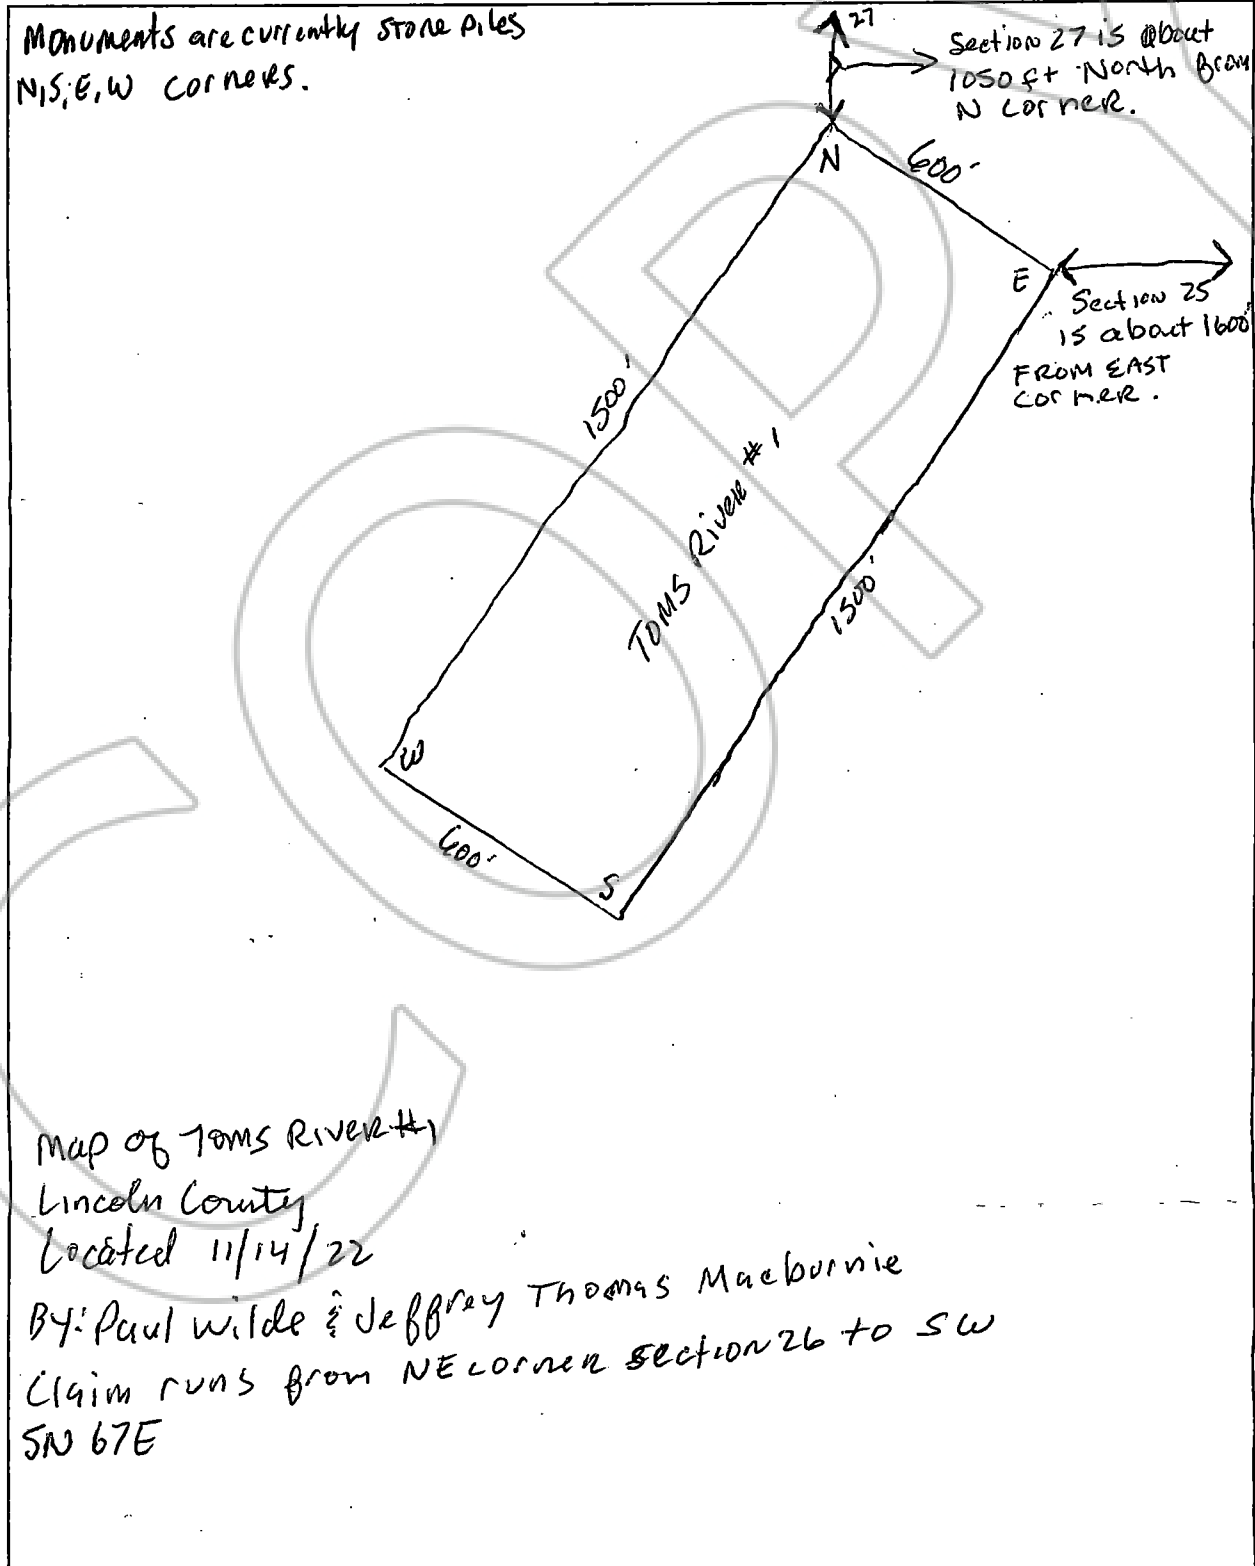 Monuments are currently stone piles
N,S,E,W corners.
27
Section 27 is about
1050 ft North From
N corner.
N
600'
E
Section 25
is about 1600'
FROM EAST
corner.
1500'
Toms River #1
1500'
W
600'
S
COPY
Map of Toms River #1
Lincoln County
Located 11/14/22
By: Paul Wilde & Jeffrey Thomas Macburnie
Claim runs from NE corner section 26 to SW
5N 67E